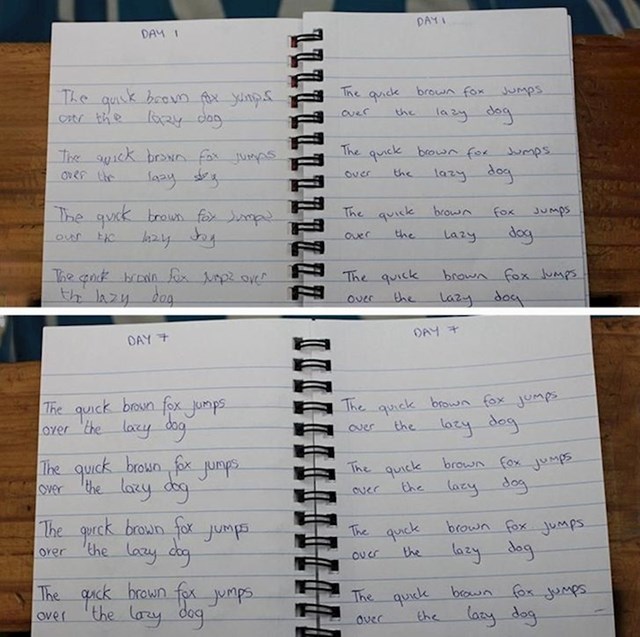 DAY 1
The quick brown fox jumps
over the lazy dog
The quick brown fox jumps
over the lazy dog
The quick brown fox jumps
over the lazy dog
The quick brown fox jumps over
the lazy dog
DAY 1
The quick brown fox jumps
over the lazy dog
The quick brown fox jumps
over the lazy dog
The quick brown fox jumps
over the lazy dog
The quick brown fox jumps
over the lazy dog
DAY 7
The quick brown fox jumps
over the lazy dog
The quick brown fox jumps
over the lazy dog
The quick brown fox jumps
over the lazy dog
The quick brown fox jumps
over the lazy dog
DAY 7
The quick brown fox jumps
over the lazy dog
The quick brown fox jumps
over the lazy dog
The quick brown fox jumps
over the lazy dog
The quick brown fox jumps
over the lazy dog